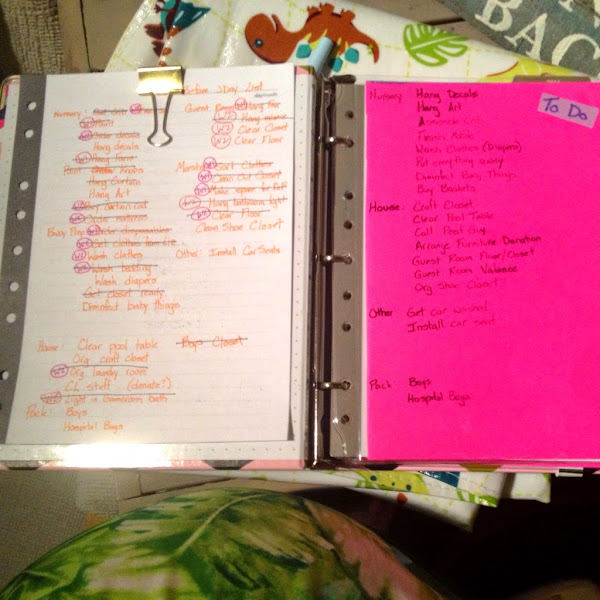 BAC
Before 3 Day 21st
Nursery:
Paint
Order decals
Hang decals
Hang
Paint Knobs
Hang Curtain
Hang Art
Buy curtain rod
Order mattress
Baby Prep:
W2 Order disposables
Get clothes from
Wash clothes
Wash bedding
Wash diapers
Get closet ready
Disinfect baby things
House: Clear pool table
Org craft closet
Org laundry room
CL stuff (donate?)
Light in bathroom
Pack: Boys
Hospital Bags
Guest Room: Hang fan
W2 Hang mirror
W2 Clear Closet
W2 Clear Floor
Master: Sort Clothes
Clean Out Closet
Make space for
Hang bathroom light
Clear Floor
Clean Shoe Closet
Other: Install Car Seats
Boys Closet
To Do
Nursery: Hang Decals
Hang Art
Assemble Crib
Wash Clothes (Diapers)
Put everything away
Disinfect Baby Things
Buy Baskets
House: Craft Closet
Clear Pool Table
Call Pest Guy
Arrange Furniture Donation
Guest Room Floor/Closet
Guest Room Valance
Org Shoe Closet
Other Get car washed
Install car seat
Pack: Boys
Hospital Bags